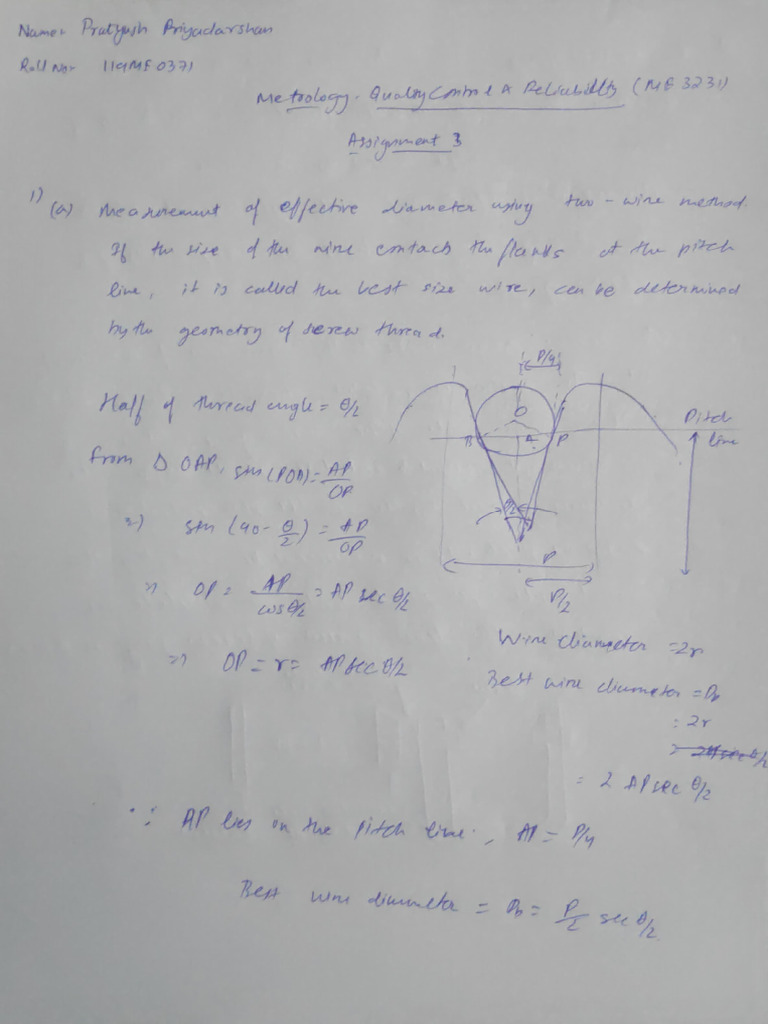 Name:- Pratyush Priyadarshan
Roll No:- 119ME0371
Metrology, Quality Control & Reliability (ME 3231)
Assignment 3
1) (a) Measurement of effective diameter using two-wire method.
If the size of the wire contacts the flanks at the pitch
line, it is called the best size wire, can be determined
by the geometry of screw thread.
P/4
Half of thread angle = θ/2
O
Pitch
line
B A P
From Δ OAP, sin(POA) = AP/OP
⇒ sin(90 - θ/2) = AP/OP
P
P/2
⇒ OP = AP/cosθ/2 = AP sec θ/2
Wire diameter = 2r
⇒ OP = r = AP sec θ/2
Best wire diameter = Db
= 2r
= 2 AP sec θ/2
∵ AP lies on the pitch line, AP = P/4
Best wire diameter = Db = P/2 sec θ/2